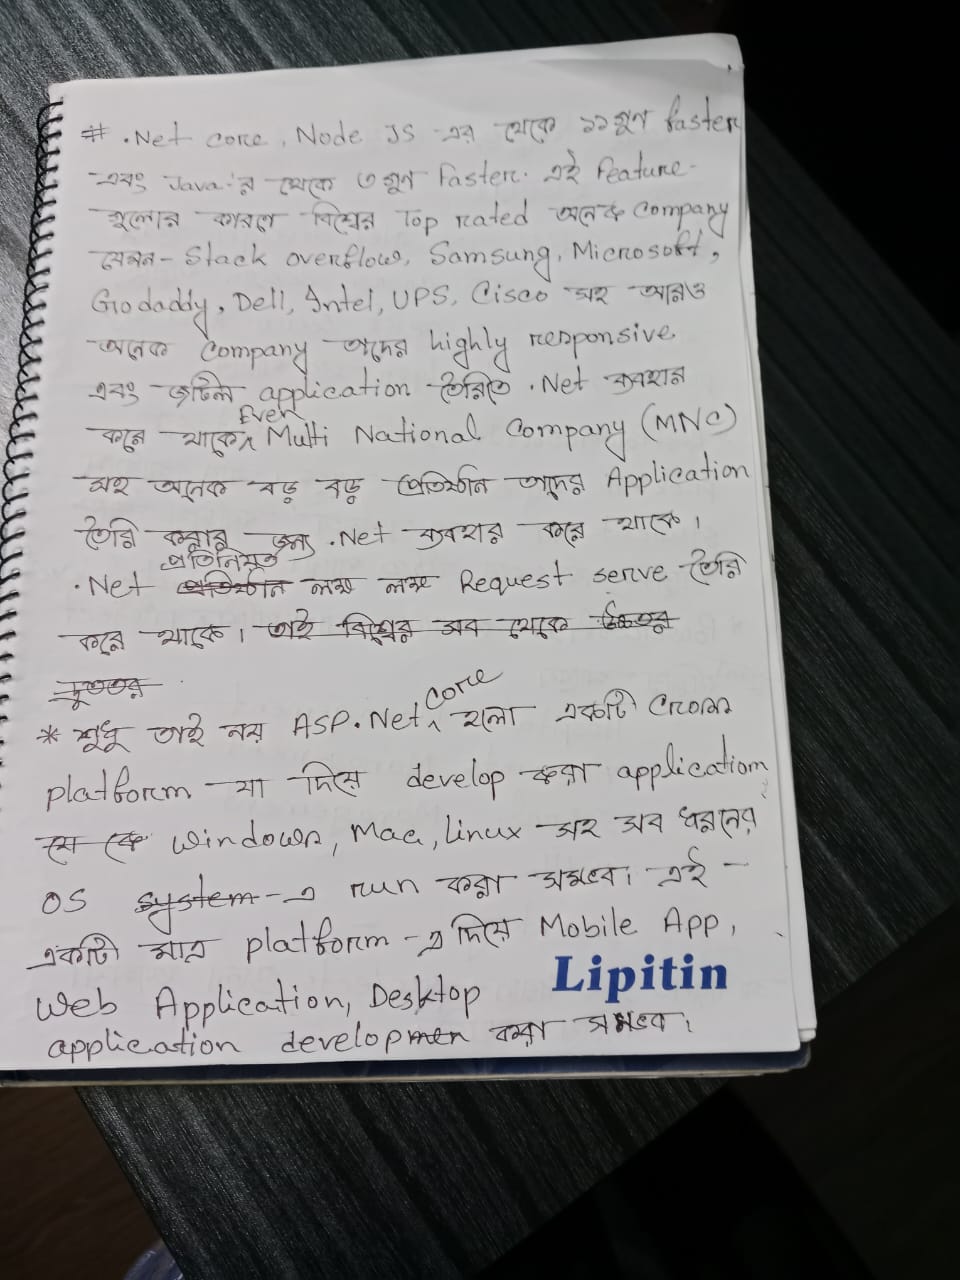 # .Net core, Node JS -এর থেকে ১১ গুন faster
এবং Java-'র থেকে ৩ গুন Faster. এই Feature-
গুলোর কারণে বিশ্বের Top rated অনেক Company
যেমন - Stack overflow, Samsung, Microsoft,
Godaddy, Dell, Intel, UPS, Cisco সহ আরও
অনেক Company তাদের highly responsive
এবং জটিল application তৈরিতে .Net ব্যবহার
Even
করে থাকে। Multi National Company (MNC)
সহ অনেক বড় বড় প্রতিষ্ঠান তাদের Application
তৈরি করার জন্য .Net ব্যবহার করে থাকে।
প্রতিনিয়ত
.Net প্রতিষ্ঠান লক্ষ লক্ষ Request serve তৈরি
করে থাকে। তাই বিশ্বের সব থেকে
দ্রুততর
core
* শুধু তাই নয় ASP.Net ^ হলো একটি Cross
platform যা দিয়ে develop করা application
সে কে Windows, Mac, Linux সহ সব ধরনের
OS system-এ run করা সম্ভব। এই
একটি মাত্র platform-এ দিয়ে Mobile App,
Web Application, Desktop
Lipitin
application developmen করা সম্ভব।